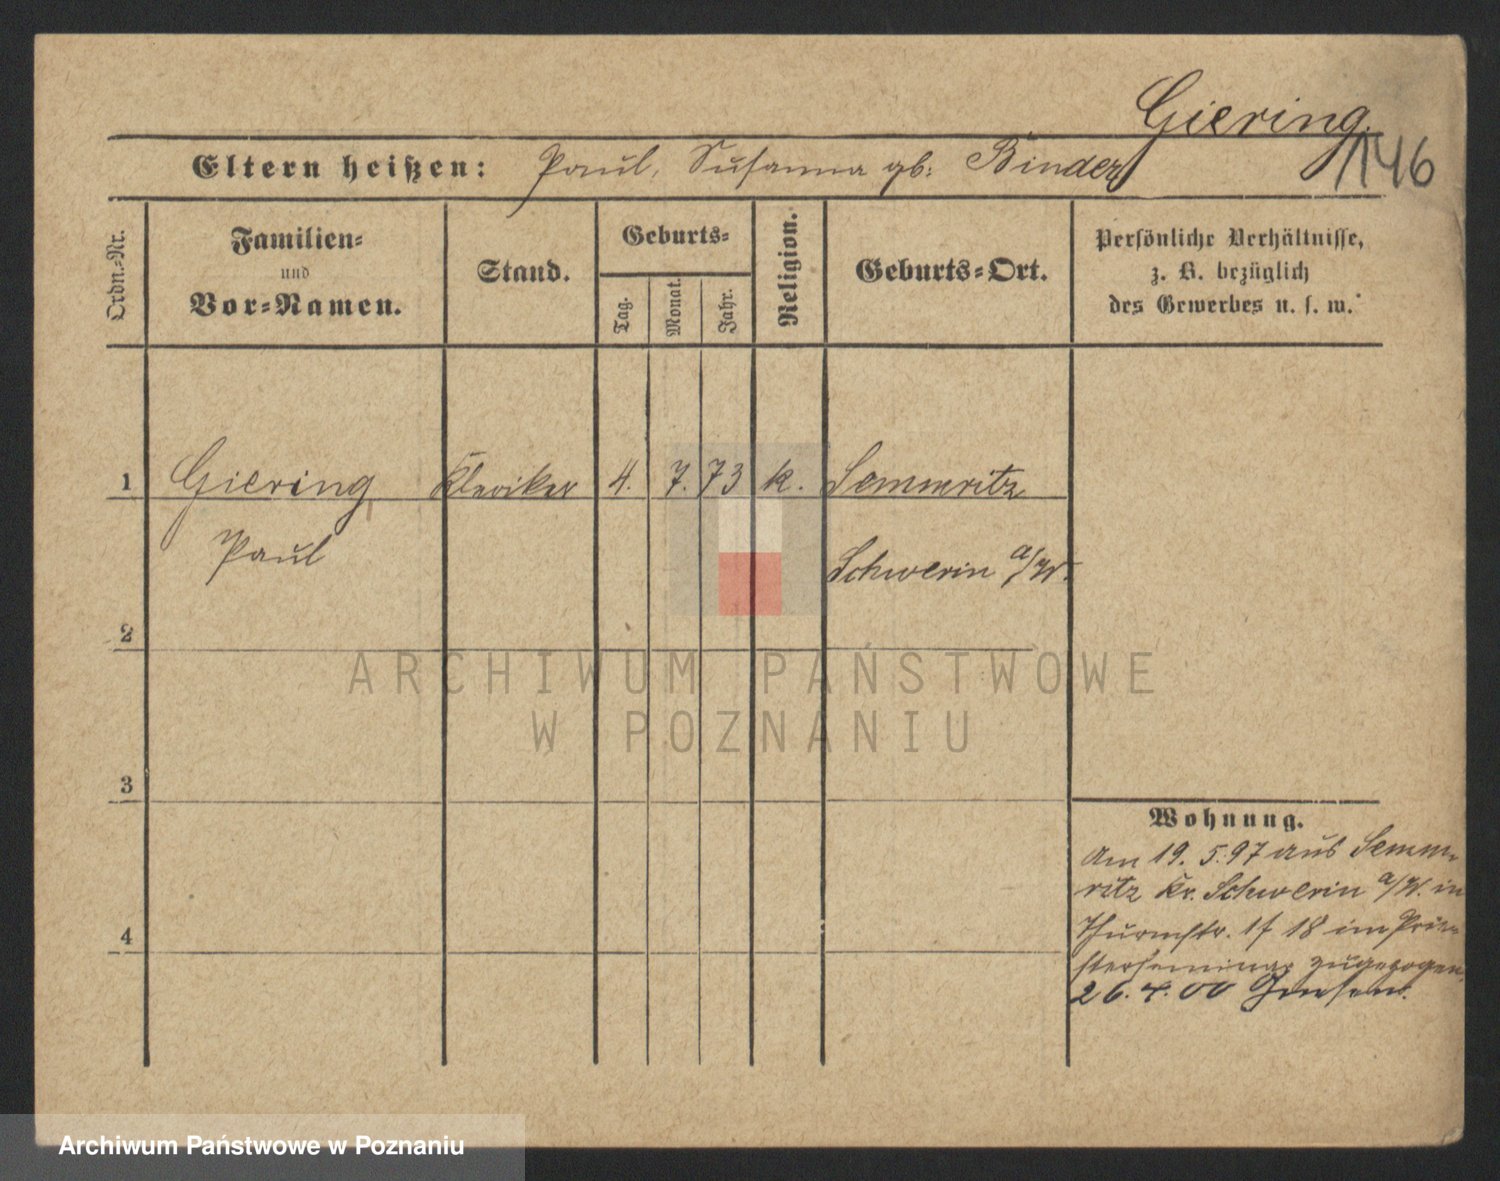 Giering
146
Eltern heißen: Paul, Susanna gb: Binder
Ordn.-Nr.
Familien-
und
Vor-Namen.
Stand.
Geburts-
Tag.
Monat.
Jahr.
Religion.
Geburts-Ort.
Persönliche Verhältnisse,
z. B. bezüglich
des Gewerbes u. s. w.
1 Giering Kleriker 4. 7. 73 k. Semmritz
Paul
Schwerin a/W.
2
ARCHIWUM PAŃSTWOWE
W POZNANIU
3
Wohnung.
Am 19. 5. 97 aus Semm-
ritz Kr. Schwerin a/W. in
Thurmstr. 17 18 im Prie-
sterseminar zugezogen.
4
26. 4. 00 Gnesen.
Archiwum Państwowe w Poznaniu